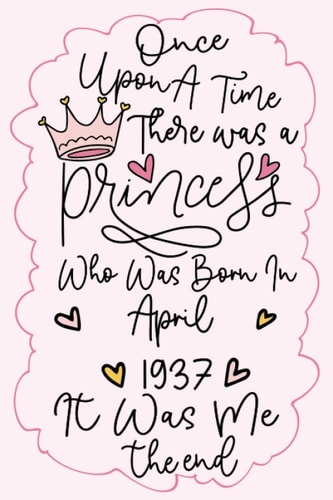 Once
Upon A Time
There was a
princess
Who Was Born In
April
1937
It Was Me
the end